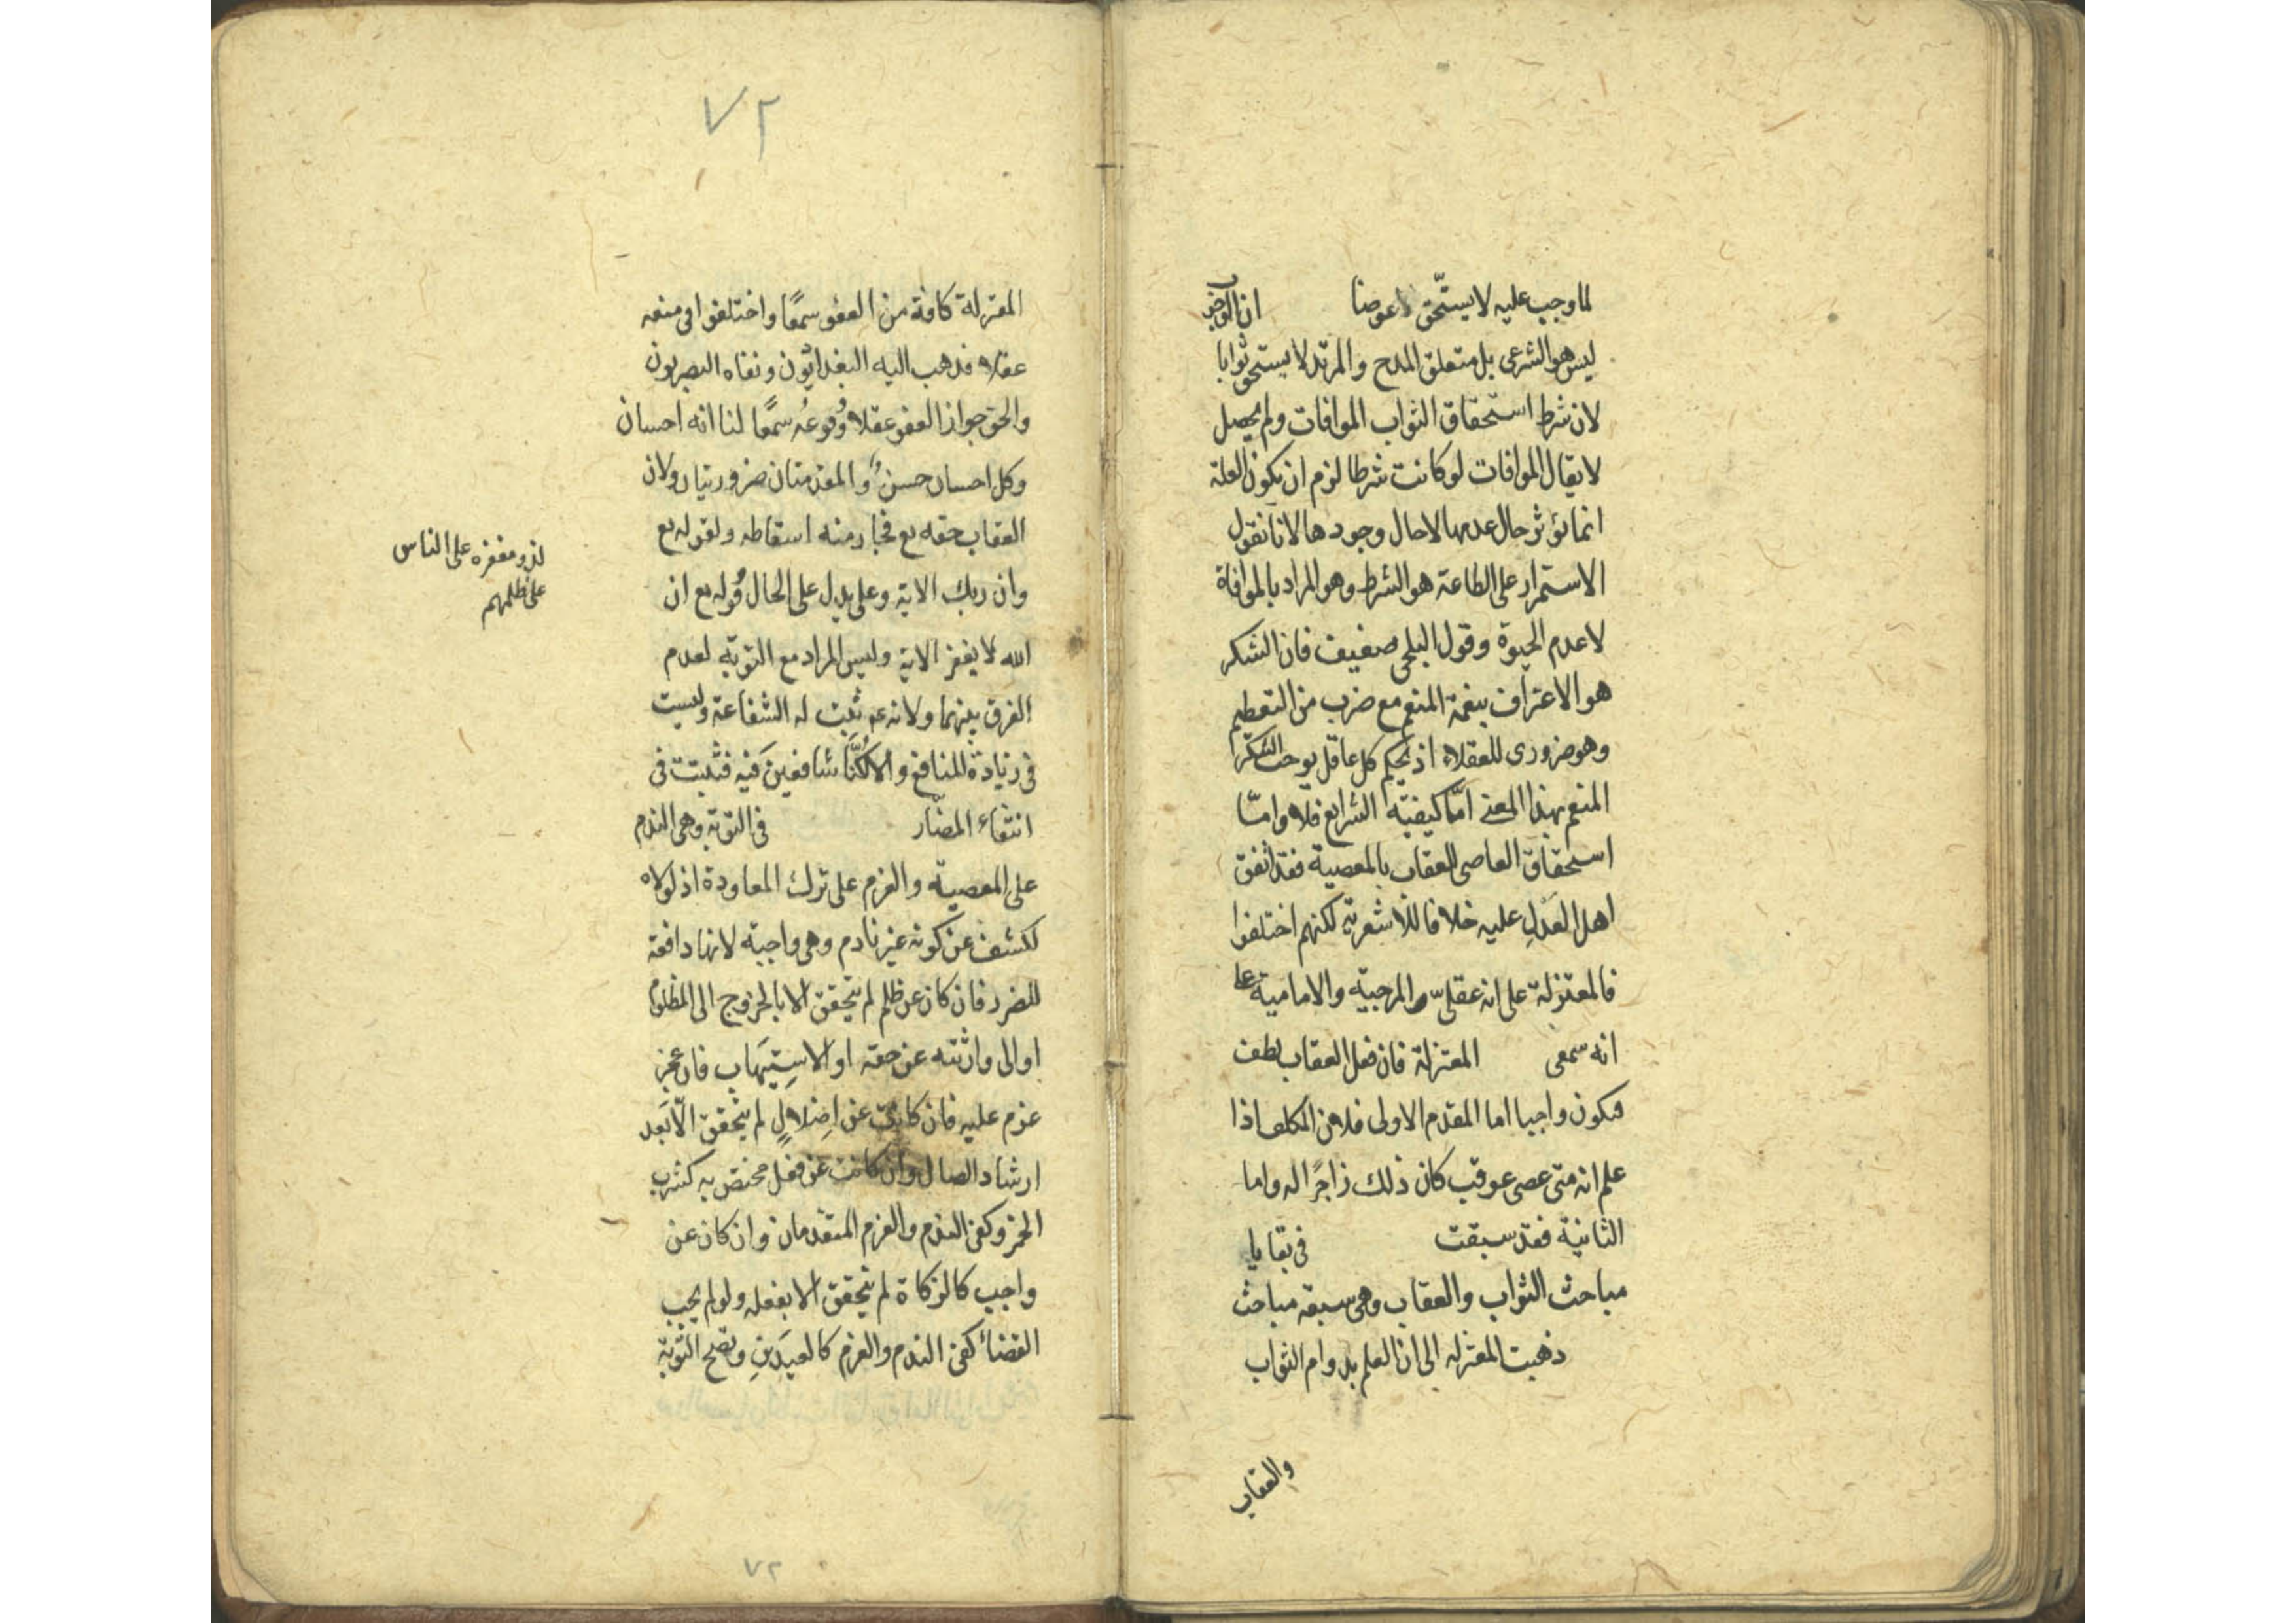 لما وجب عليه لا يستحق عوضا ان الوجوب
ليس هو الشرعى بل متعلق المدح والمرتد لا يستحق ثوابا
لان شرط استحقاق الثواب الموافات ولم يحصل
لا يقال الموافات لو كانت شرطا لزم ان يكون العلة
انما تؤثر حال عدمها لا حال وجودها لانا نقول
الاستمرار على الطاعة هو الشرط وهو المراد بالموافاة
لا عدم الحيوة وقول البلخى ضعيف فان الشكر
هو الاعتراف بنعمة المنعم مع ضرب من التعظيم
وهو ضرورى للعقلاء اذ يحكم كل عاقل بوجوب الشكر
المنعم بهذا المعنى اما كيفية الشرايع فلا واما
استحقاق العاصى للعقاب بالمعصية فقد اتفق
اهل العدل عليه خلافا للاشعرية لكنهم اختلفوا
فالمعتزلة على انه عقلى والمرجية والامامية على
انه سمعى المعتزلة فان فعل العقاب لطف
فيكون واجبا اما المقدم الاولى فلان المكلف اذا
علم انه متى عصى عوقب كان ذلك زاجرا له واما
الثانية فقد سبقت فى بقايا
مباحث الثواب والعقاب وهى سبعة مباحث
ذهبت المعتزله الى ان العلم بدوام الثواب
والعقاب
٧٢
المعتزلة كافة من العفو سمعا واختلفوا فى منعه
عقلا فذهب اليه البغداديون ونفاه البصريون
والحق جواز العفو عقلا وقوعه سمعا لنا انه احسان
وكل احسان حسن والمقدمتان ضروريتان ولان
العقاب حقه تع فجاز منه اسقاطه ولقوله تع
وان ربك الاية وعلى يدل على الحال قوله تع ان
الله لا يغفر الاية وليس المراد مع التوبة لعدم
الفرق بينهما ولانه عم ثبت له الشفاعة وليست
فى زيادة المنافع والا لكنا شافعين فيه فثبتت فى
انتفاء المضار فى التوبة وهى الندم
على المعصية والعزم على ترك المعاودة اذ لولاه
لكشف عن كونه غير نادم وهى واجبة لانها دافعة
للضرر فان كان عن ظلم لم يتحقق الا بالخروج الى المظلوم
او الى وارثته عن حقه او الاستيهاب فان عجز
عزم عليه فان كانت عن اضلال لم يتحقق الا بعد
ارشاد الضال وان كانت عن فعل مختص به كشرب
الخمر وكفى الندم والعزم المتقدمان وان كان عن
واجب كالزكاة لم يتحقق الا بفعله ولو لم يجب
القضاء كفى الندم والعزم كالعيدين وتصح التوبة
لذو مغفرة على الناس
على ظلمهم
٧٢